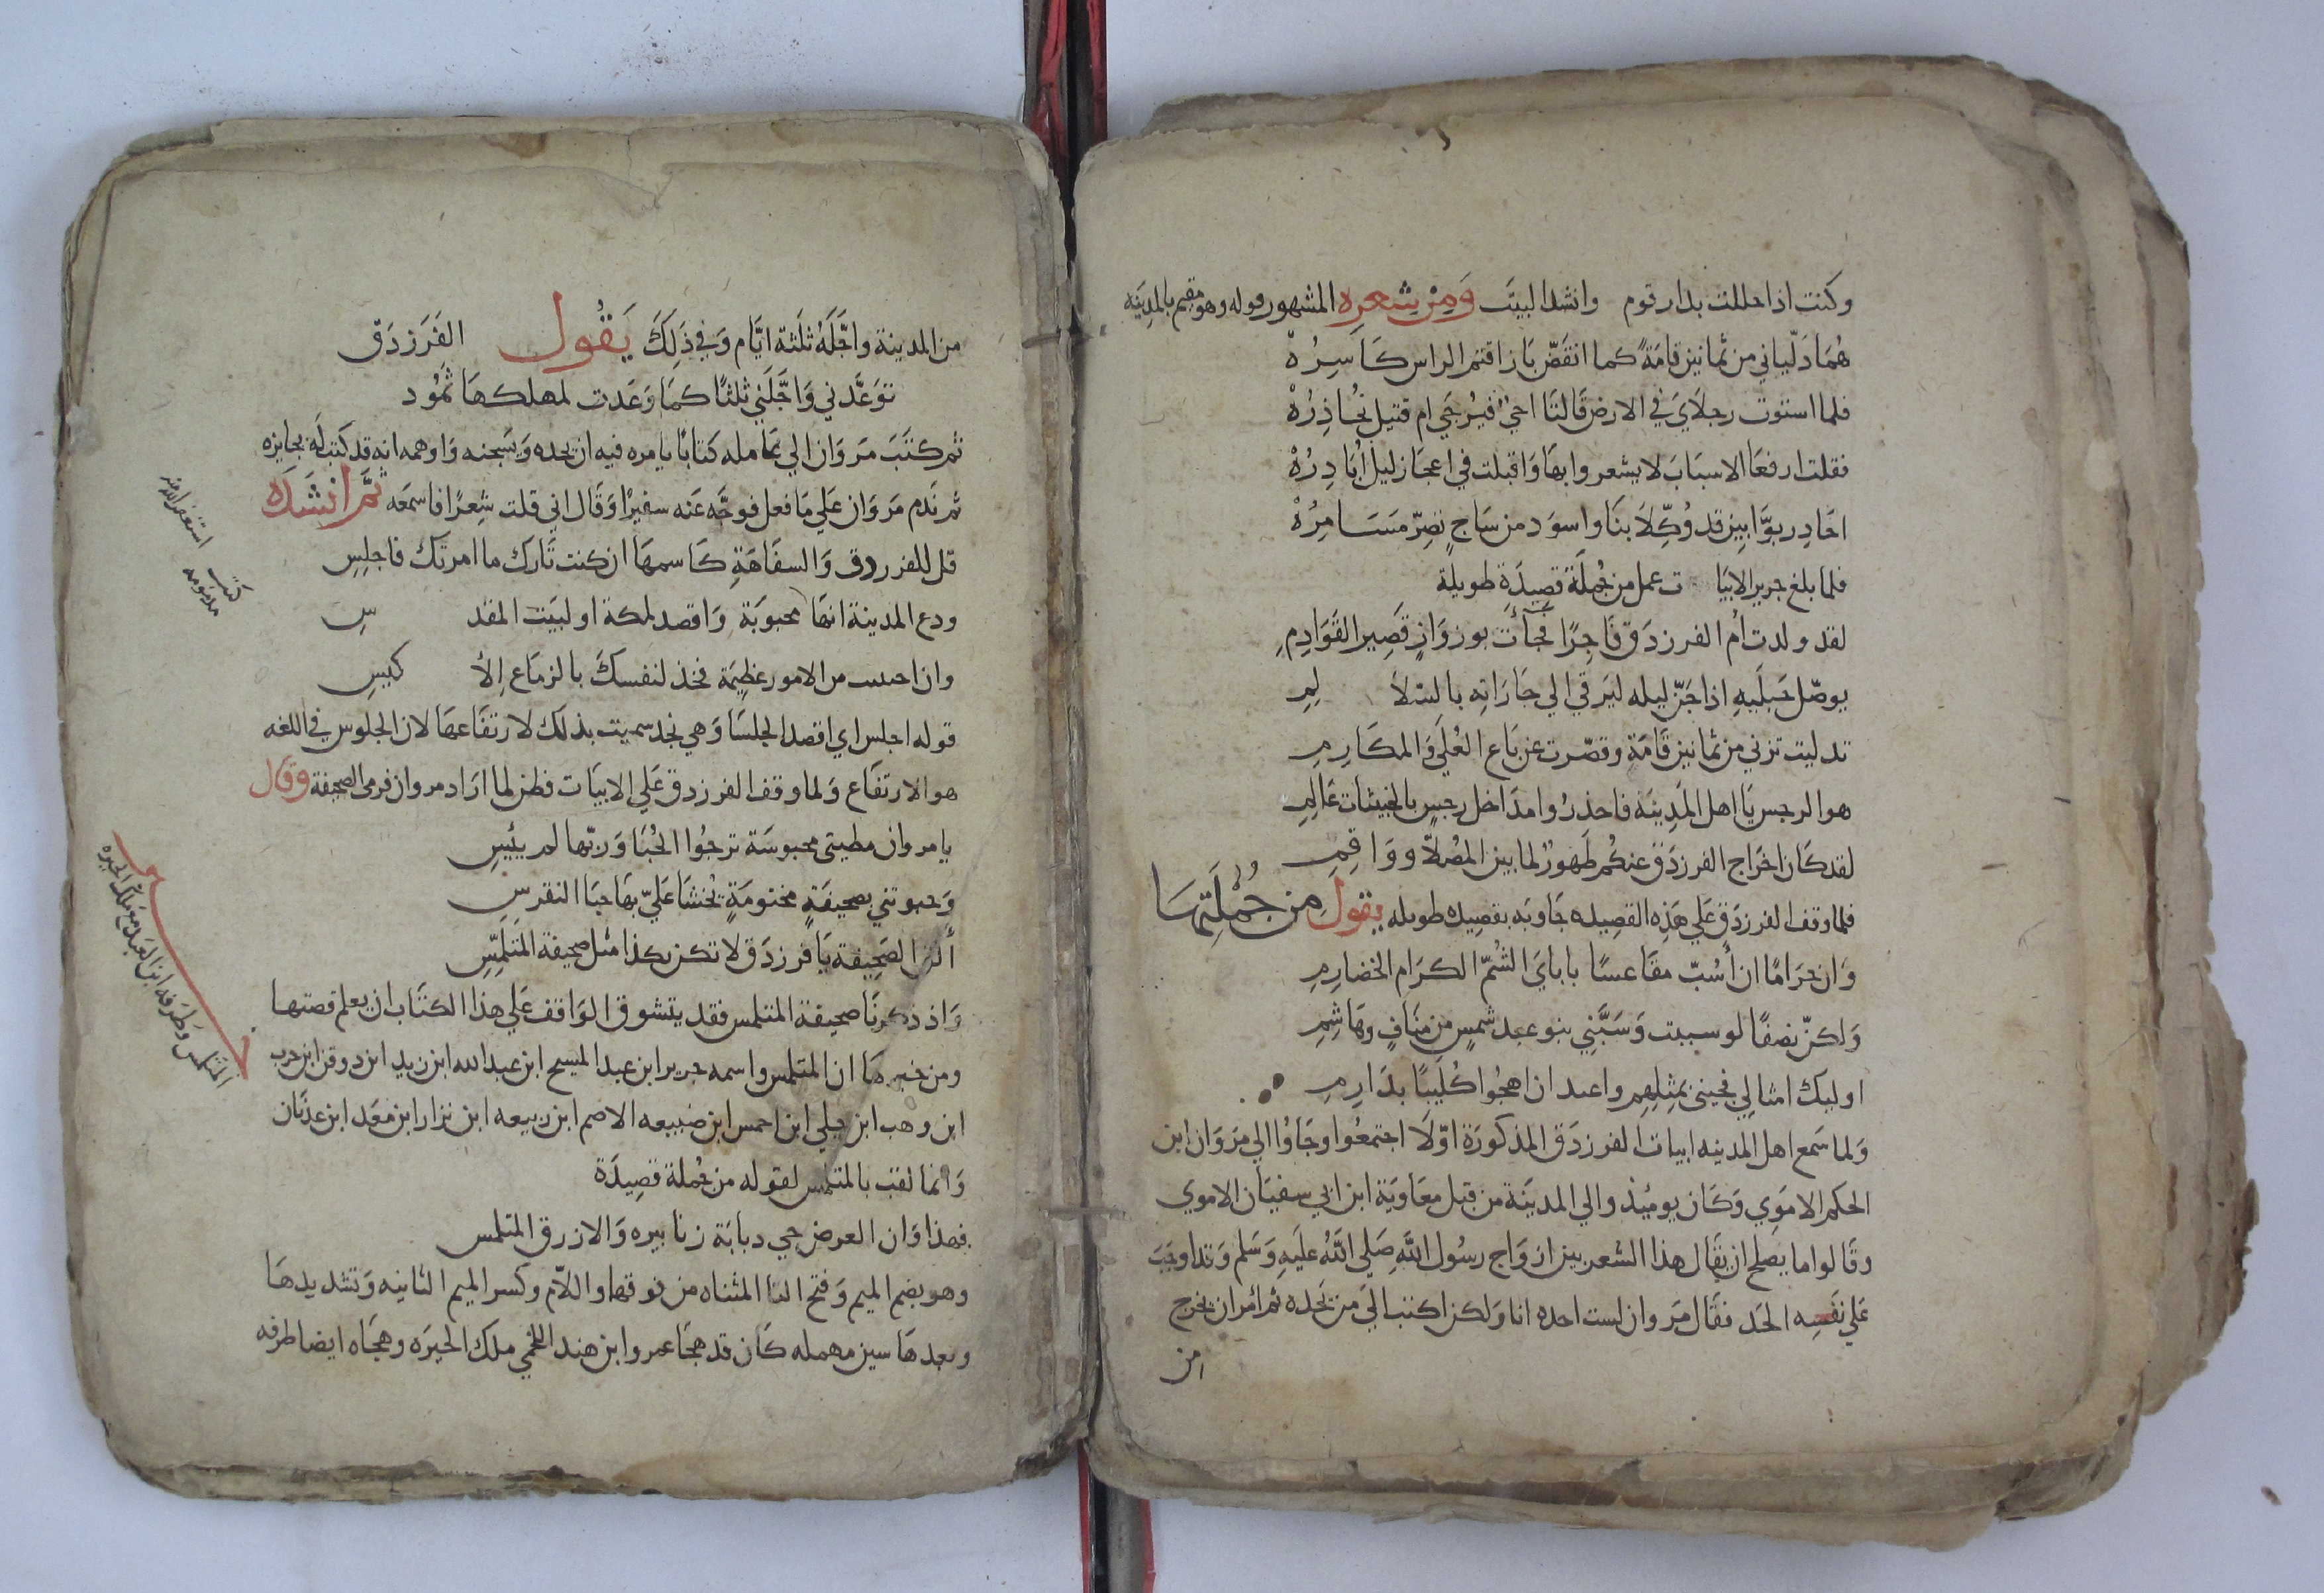 وكنت اذا حللت بدار قوم وانشد البيت وَمِنْ شِعرِه المشهور قوله وهو مقيم بالمدِينَه
هُمَا دَلّياني من ثمانين قامَةً كما انقَضّ بَاز اقتم الراس كَاسِرُهْ
فلما استوت رجلَايَ في الارض قَالتَا احيٌ فيُرجَي ام قتيل نُحاذِرُهْ
فقلت ارفعَا الاسبَابَ لا يشعروا بهَا وَاقبلت في اعجَاز ليل أبَادِرُهْ
احَاذِر بوَّابين قد وُكِّلَا بنَا واسوَد من سَاجٍ تصِرّ مسَامِرُهْ
فلما بلغ جرير الابيَات عمل من جُملَة قصِيدَة طويلة
لقد ولدت أم الفرزدَق فَاجِرًا فجَأَت بوزوَازٍ قصِير القَوَادِمِ
يوصّل حَبلَيهِ اذا جَنّ ليله ليَرقي الي جَارَاتِه بالسّلَالِمِ
تدليت تزني من ثمانين قَامَةٍ وقصّرت عن بَاع العُلَي وَالمكَارِمِ
هو الرجس يَا اهل المَدِينَة فاحذرُوا مدَاخل رجسٍ بالخبيثات عَالِمِ
لقد كَان اخرَاج الفرزدَق عنكُم طَهورٌ لما بين المُصلّا ووَاقِمِ
فلما وقف الفرزدَق عَلي هَذِه القصِيده جَاوبَه بقصِيده طويله يقول من جُمْلَتِهَا
وَان حرَامًا ان أسُبّ مقَاعسًا باباىَ الشُمّ الكرَام الخضارِمِ
وَلكنّ نصفًا لو سببت وَسَبَّنِي بنو عبد شمسٍ من منَافٍ وهَاشِمِ
اوليك امثالي فجيني بمِثلِهِم واعبد ان اهجُوا كُلَيبًا بدَارِمِ
وَلما سَمع اهل المدينه ابيات الفرزدَق المذكورَة اوّلَا اجتمعُوا وجَاوُا الي مَروَان ابن
الحكم الامَوِي وَكَان يوميْذ والي المدينَة من قبل معَاوِيَة ابن ابي سفيَان الاموي
وقَالوا ما يصلح ان يقَال هذا الشعر بين ازوَاج رسُول اللهِ صَلي اللهُ عليَهِ وَسَلم وَقد اوجَبَ
عَلي نفسِه الحَد فقَال مَروان لست احده انا وَلكن اكتب اليَ من يَحَده ثم امَر ان يخرج
من
من المدينة واجَّلَهُ ثلَثة ايَّام وَفي ذَلِكَ يَقُول الفَرَزدَق
توَعَّدني وَاجَّلَني ثلثًا كمَا وَعَدت لمهلكهَا ثَمُود
ثم كتَبَ مَروَان الي عَامله كتابًا يامره فيه ان يحده وَيَسجنه وَاوهمه انه قد كتبَ له بجايزه
ثم نَدم مَروَان عَلي مَا فعل فوجَّه عَنه سفيرًا وَقَال اني قلت شِعرًا فاسمعَه ثمَّ انشَدَه
قل للفرزدق وَالسفَاهَةِ كَاسمهَا ان كنت تَارك ما امرتك فاجلِسِ
ودع المدينة انهَا محبوبَة وَاقصد لمكة او لبَيت المقدسِ
وان احببت من الامور عظِيمَة فخذ لنفسكَ بالزمَاع الأكيسِ
قوله اجلس اي اقصد الجلسَا وَهي نجد سميت بذلك لارتفَاعهَا لان الجلوس في اللغه
هو الارتفَاع وَلما وقف الفرزدق عَلي الابيَات فطن لما ارَاد مروان فرمى الصحيفة وقَال
يا مروان مطيتي محبوسَة ترجُوا الحُبَا وَربّها لم يئِيسِ
وَحبوتني بصحيفَةٍ مختومَةٍ يُخشَا عَليّ بهَا حبَا النقرسِ
ألقِ الصَحِيفة يَا فرزدَق لا تكن نكدًا مثل صحيفة المتلمّسِ
وَاذ ذكرنَا صحيفة المتلمس فقد يتشوق الوَاقف عَلي هذا الكتَاب ان يعلم قصتها
ومن خبرهَا ان المتلمس واسمه جرير ابن عبد المسيح ابن عبد الله ابن زيد ابن دوفن ابن حرب
ابن وهب ابن جلي ابن احمس ابن ضبيعه الاصم ابن ربيعه ابن نزار ابن معَد ابن عدنَان
وَانما لقب بالمتلمس لقوله من جُملة قصِيدَة
فهذا وَان العرض حي دبابَة زنابيره وَالازرق المتلمس
وهو بضم الميم وَفتح التا المثناه من فوقها واللام وكسر الميم الثانيه وَتشديدهَا
وبعدهَا سين مهمله كَان قد هجَا عمروا ابن هند اللخمي ملك الحيرَه وهجَاه ايضا طرفه
استغفر الله
المتلمس وَطَرفه ابن العَبد مع ملك الحيره